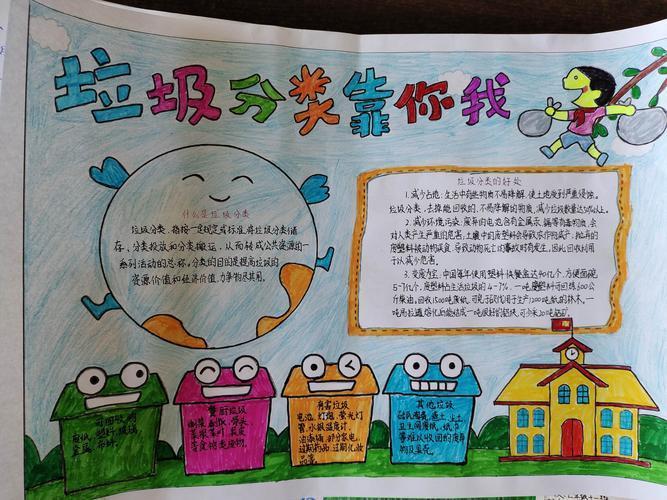 垃圾分类靠你我
什么是垃圾分类
垃圾分类,指按一定规定或标准将垃圾分类储
存、分类投放和分类搬运,从而转成公共资源的一
系列活动的总称。分类的目的是提高垃圾的
资源价值和经济价值,力争物尽其用。
垃圾分类的好处
1.减少占地:生活中有些物质不易降解,使土地受到严重侵蚀。
垃圾分类,去掉能回收的、不易降解的物质,减少垃圾数量达50%以上。
2.减少环境污染:废弃的电池含有金属汞、镉等有毒的物质,会
对人类产生严重的危害,土壤中的废塑料会导致农作物减产,抛弃的
废塑料被动物误食,导致动物死亡的事故时有发生,因此回收利用
可以减少危害。
3.变废为宝:中国每年使用塑料快餐盒达40亿个,方便面碗
5-7亿个,废塑料占生活垃圾的4-7%。一吨废塑料可回炼600公
斤柴油。回收1500吨废纸,可免于砍伐用于生产1200吨纸的林木。一
吨易拉罐熔化后能结成一吨很好的铝块,可少采20吨铝矿。
可回收物
废纸、塑料、玻璃
金属、布料。
餐厨垃圾
剩菜剩饭、骨头
菜根菜叶、果皮
等食物类废物。
有害垃圾
电池、灯泡、荧光灯
管、水银温度计、
油漆桶、部分家电、
过期药品、过期化妆
品等。
其他垃圾
砖瓦陶瓷、渣土
卫生间废纸、纸巾
等难以回收的废弃
物及果壳。